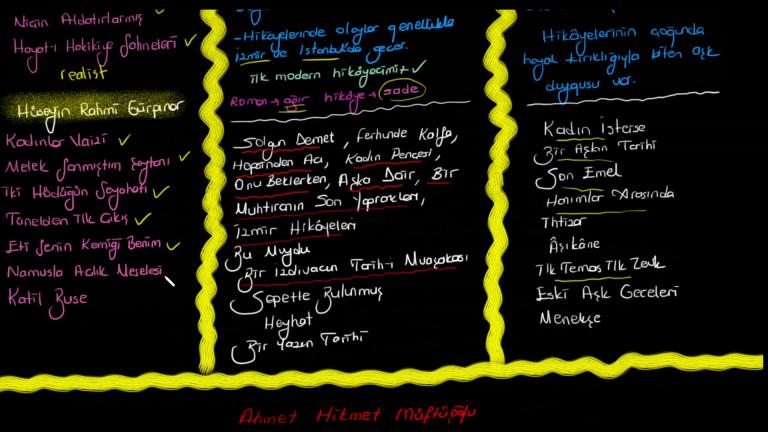 Niçin Aldatırlarmış
Hayat-ı Hakikiye Sahneleri
realist
Hüseyin Rahmi Gürpınar
Kadınlar Vaizi
Melek Sanmıştım Şeytanı
İki Hödüğün Seyahati
Tünelden İlk Çıkış
Eti Senin Kemiği Benim
Namusla Açlık Meselesi
Katil Buse
-Hikayelerinde olaylar genellikle
İzmir ve İstanbul'da geçer.
ilk modern hikayecimiz
Roman→ ağır hikâye→ sade
Solgun Demet, Ferhunde Kalfa,
Hepsinden Acı, Kadın Pençesi,
Onu Beklerken, Aşka Dair, Bir
Muhtıranın Son Yaprakları,
İzmir Hikâyeleri
Bu Muydu
Bir İzdivacın Tarih-i Muaşakası
Sepette Bulunmuş
Heyhat
Bir Yazın Tarihi
Hikâyelerinin çoğunda
hayal kırıklığıyla biten aşk
duygusu var.
Kadın İsterse
Bir Aşkın Tarihi
Son Emel
Hanımlar Arasında
İhtizar
Âşıkâne
İlk Temas İlk Zevk
Eski Aşk Geceleri
Menekşe
Ahmet Hikmet Müftüoğlu